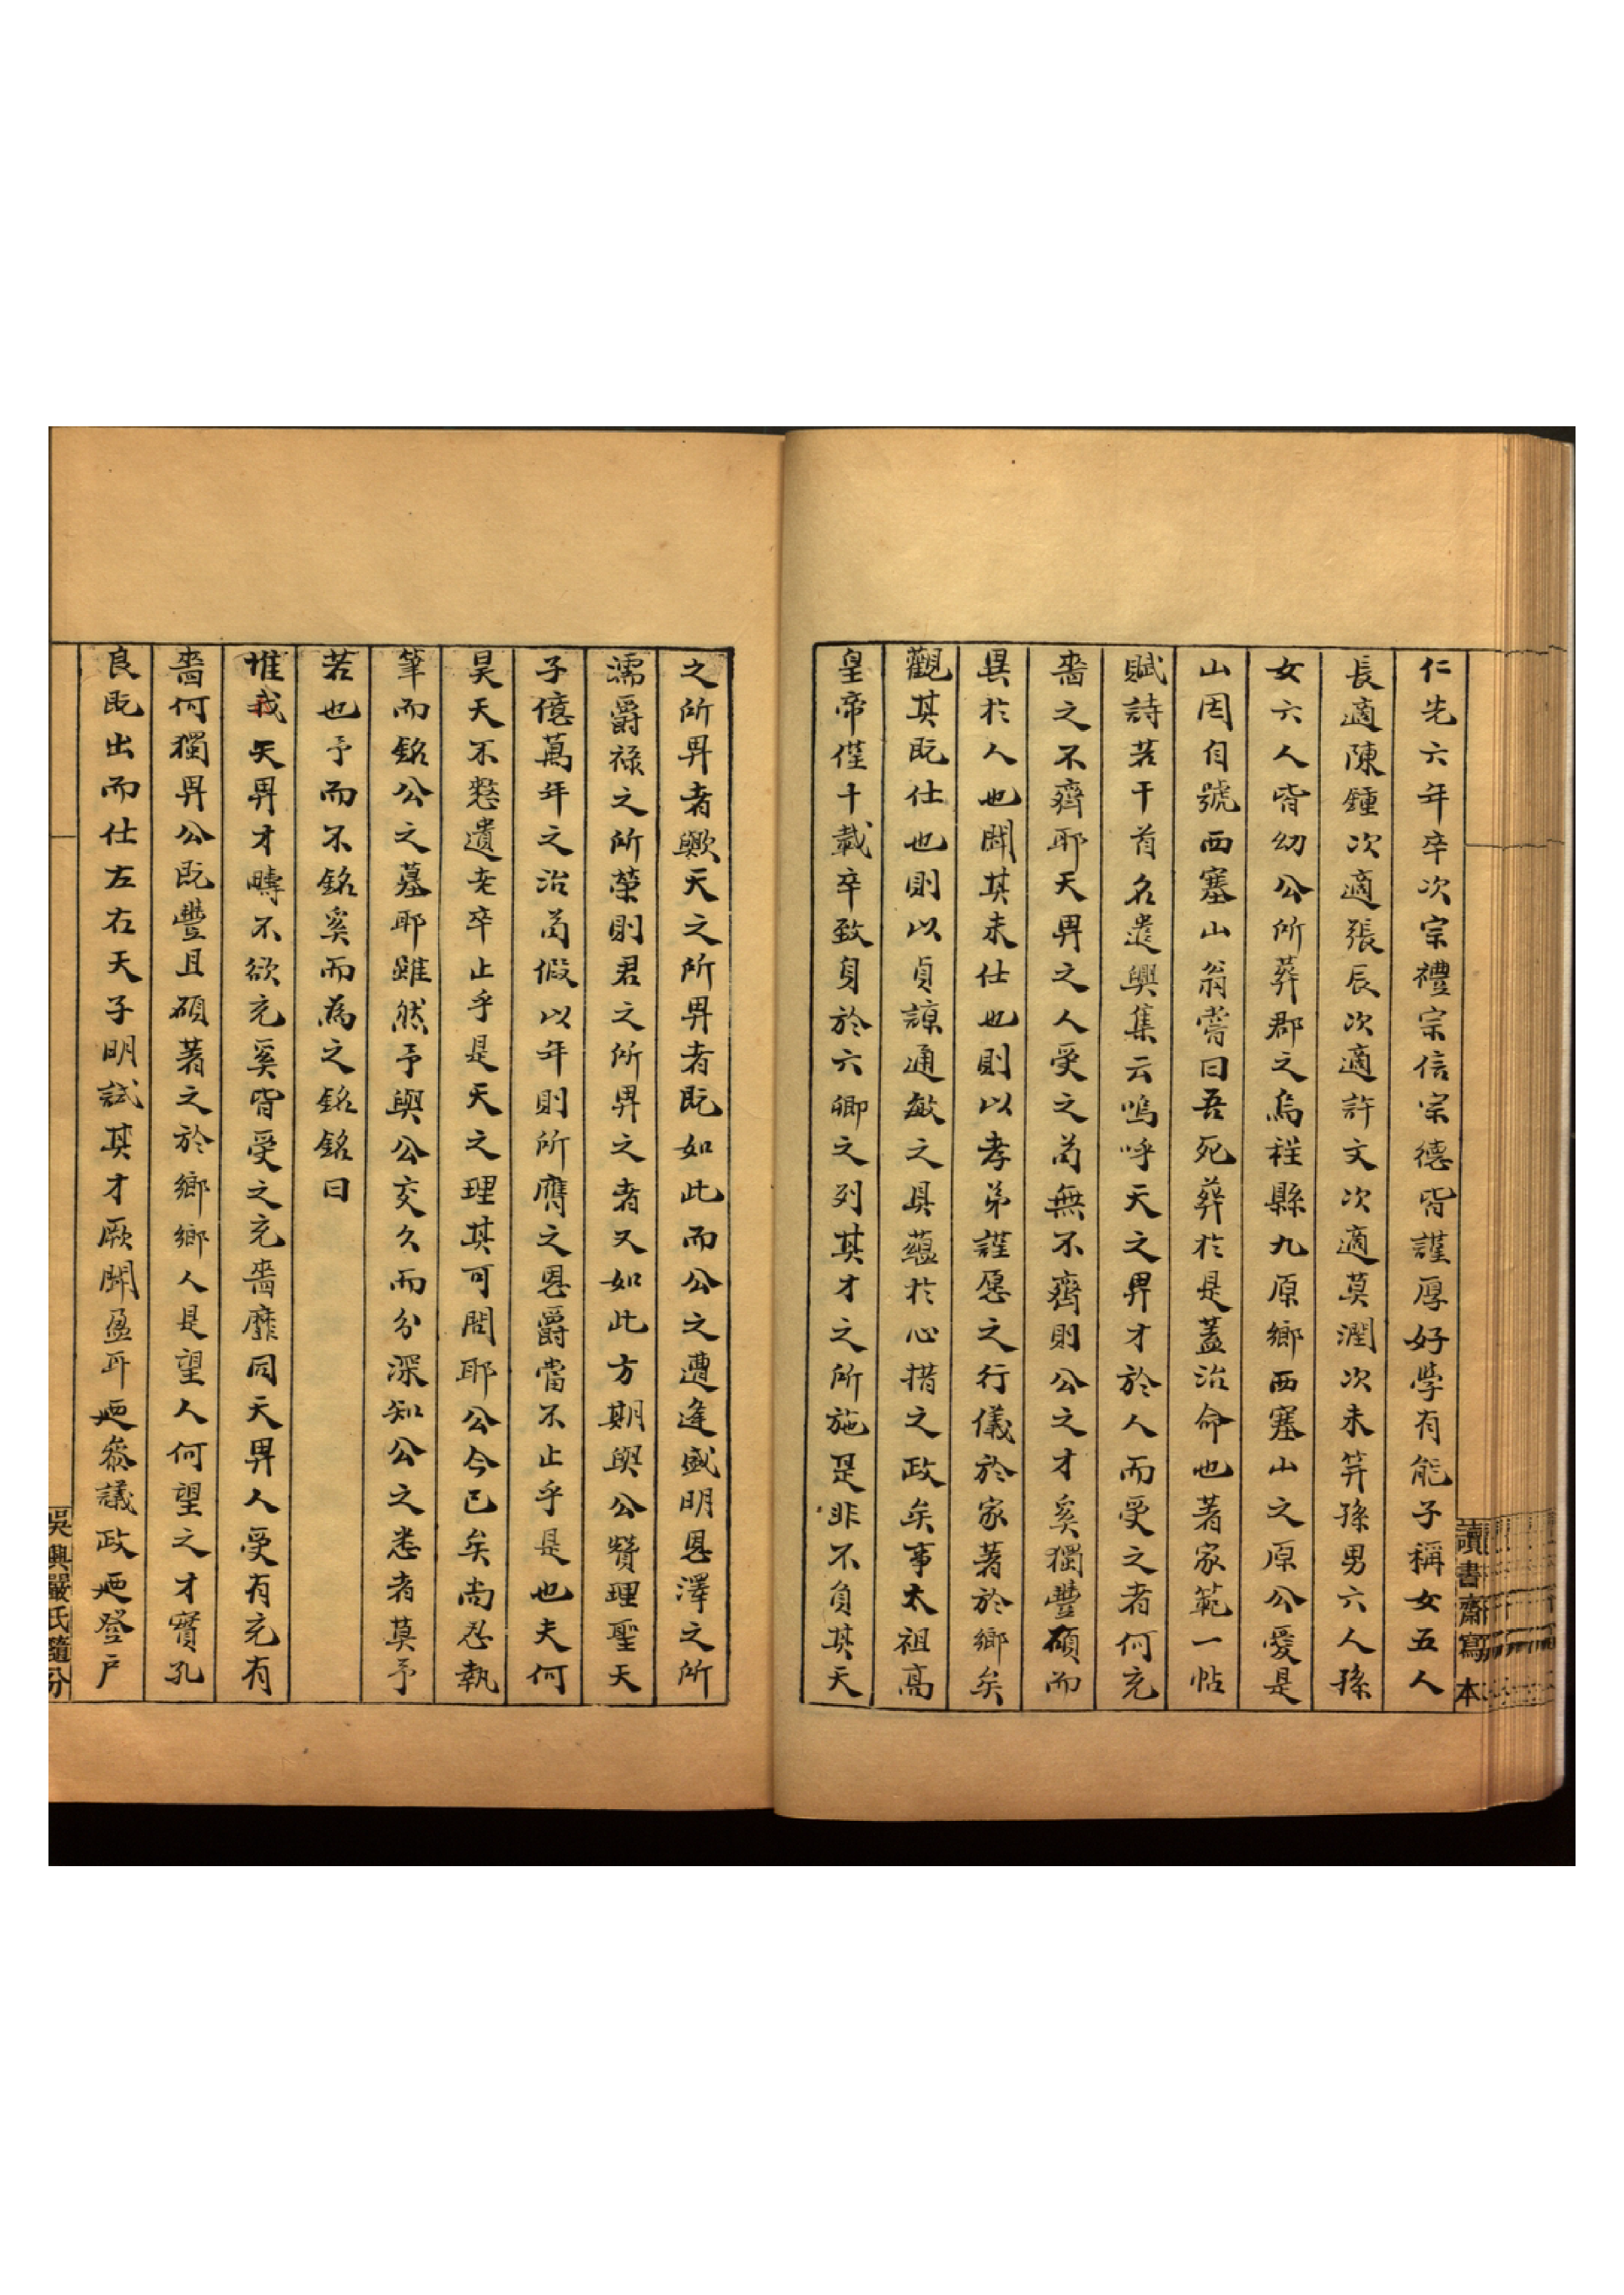 仁先六年卒次宗禮宗信宗德皆謹厚好學有能子稱女五人
長適陳鍾次適張辰次適許文次適莫潤次未笄孫男六人孫
女六人皆幼公所葬郡之烏程縣九原鄉西塞山之原公愛是
山因自號西塞山翁嘗曰吾死葬於是蓋治命也著家範一帖
賦詩若干首名遣興集云嗚呼天之畀才於人而受之者何充
嗇之不齊耶天畀之人受之苟無不齊則公之才奚獨豐碩而
異於人也聞其未仕也則以孝弟謹愿之行儀於家著於鄉矣
觀其既仕也則以貞諒通敏之具蘊於心措之政矣事太祖高
皇帝僅十載卒致身於六卿之列其才之所施是非不負其天
之所畀者歟天之所畀者既如此而公之遭逢盛明恩澤之所
濡爵祿之所榮則君之所畀之者又如此方期與公贊理聖天
子億萬年之治苟假以年則所膺之恩爵當不止乎是也夫何
昊天不憗遺老卒止乎是天之理其可問耶公今已矣尚忍執
筆而銘公之墓耶雖然予與公交久而分深知公之悉者莫予
若也予而不銘奚而為之銘銘曰
惟我天畀才疇不欲充奚皆受之充嗇靡同天畀人受有充有
嗇何獨畀公既豐且碩著之於鄉鄉人是望人何望之才寶孔
良既出而仕左右天子明試其才厥聞盈耳迺參議政迺登戶
讀書齋寫本
吳興嚴氏隨分